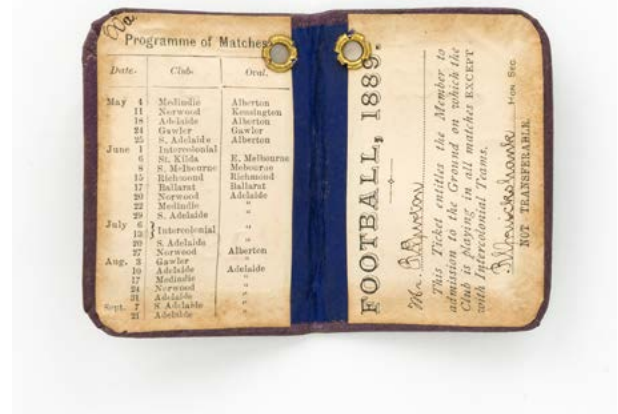 Programme of Matches.
Date. Club. Oval.
May 4 Medindie Alberton
11 Norwood Kensington
18 Adelaide Alberton
24 Gawler Gawler
25 S. Adelaide Alberton
June 1 Intercolonial
6 St. Kilda E. Melbourne
8 S. Melbourne Melbourne
15 Richmond Richmond
17 Ballarat Ballarat
20 Norwood Adelaide
22 Medindie "
29 S. Adelaide "
July 6 } Intercolonial "
13
20 S. Adelaide "
27 Norwood Alberton
Aug. 3 Gawler
10 Adelaide Adelaide
17 Medindie "
24 Norwood "
31 Adelaide "
Sept. 7 S. Adelaide "
21 Adelaide "
FOOTBALL, 1889.
Mr.
This Ticket entitles the Member to
admission to the Ground on which the
Club is playing in all matches EXCEPT
with Intercolonial Teams.
Hon Sec.
NOT TRANSFERABLE.